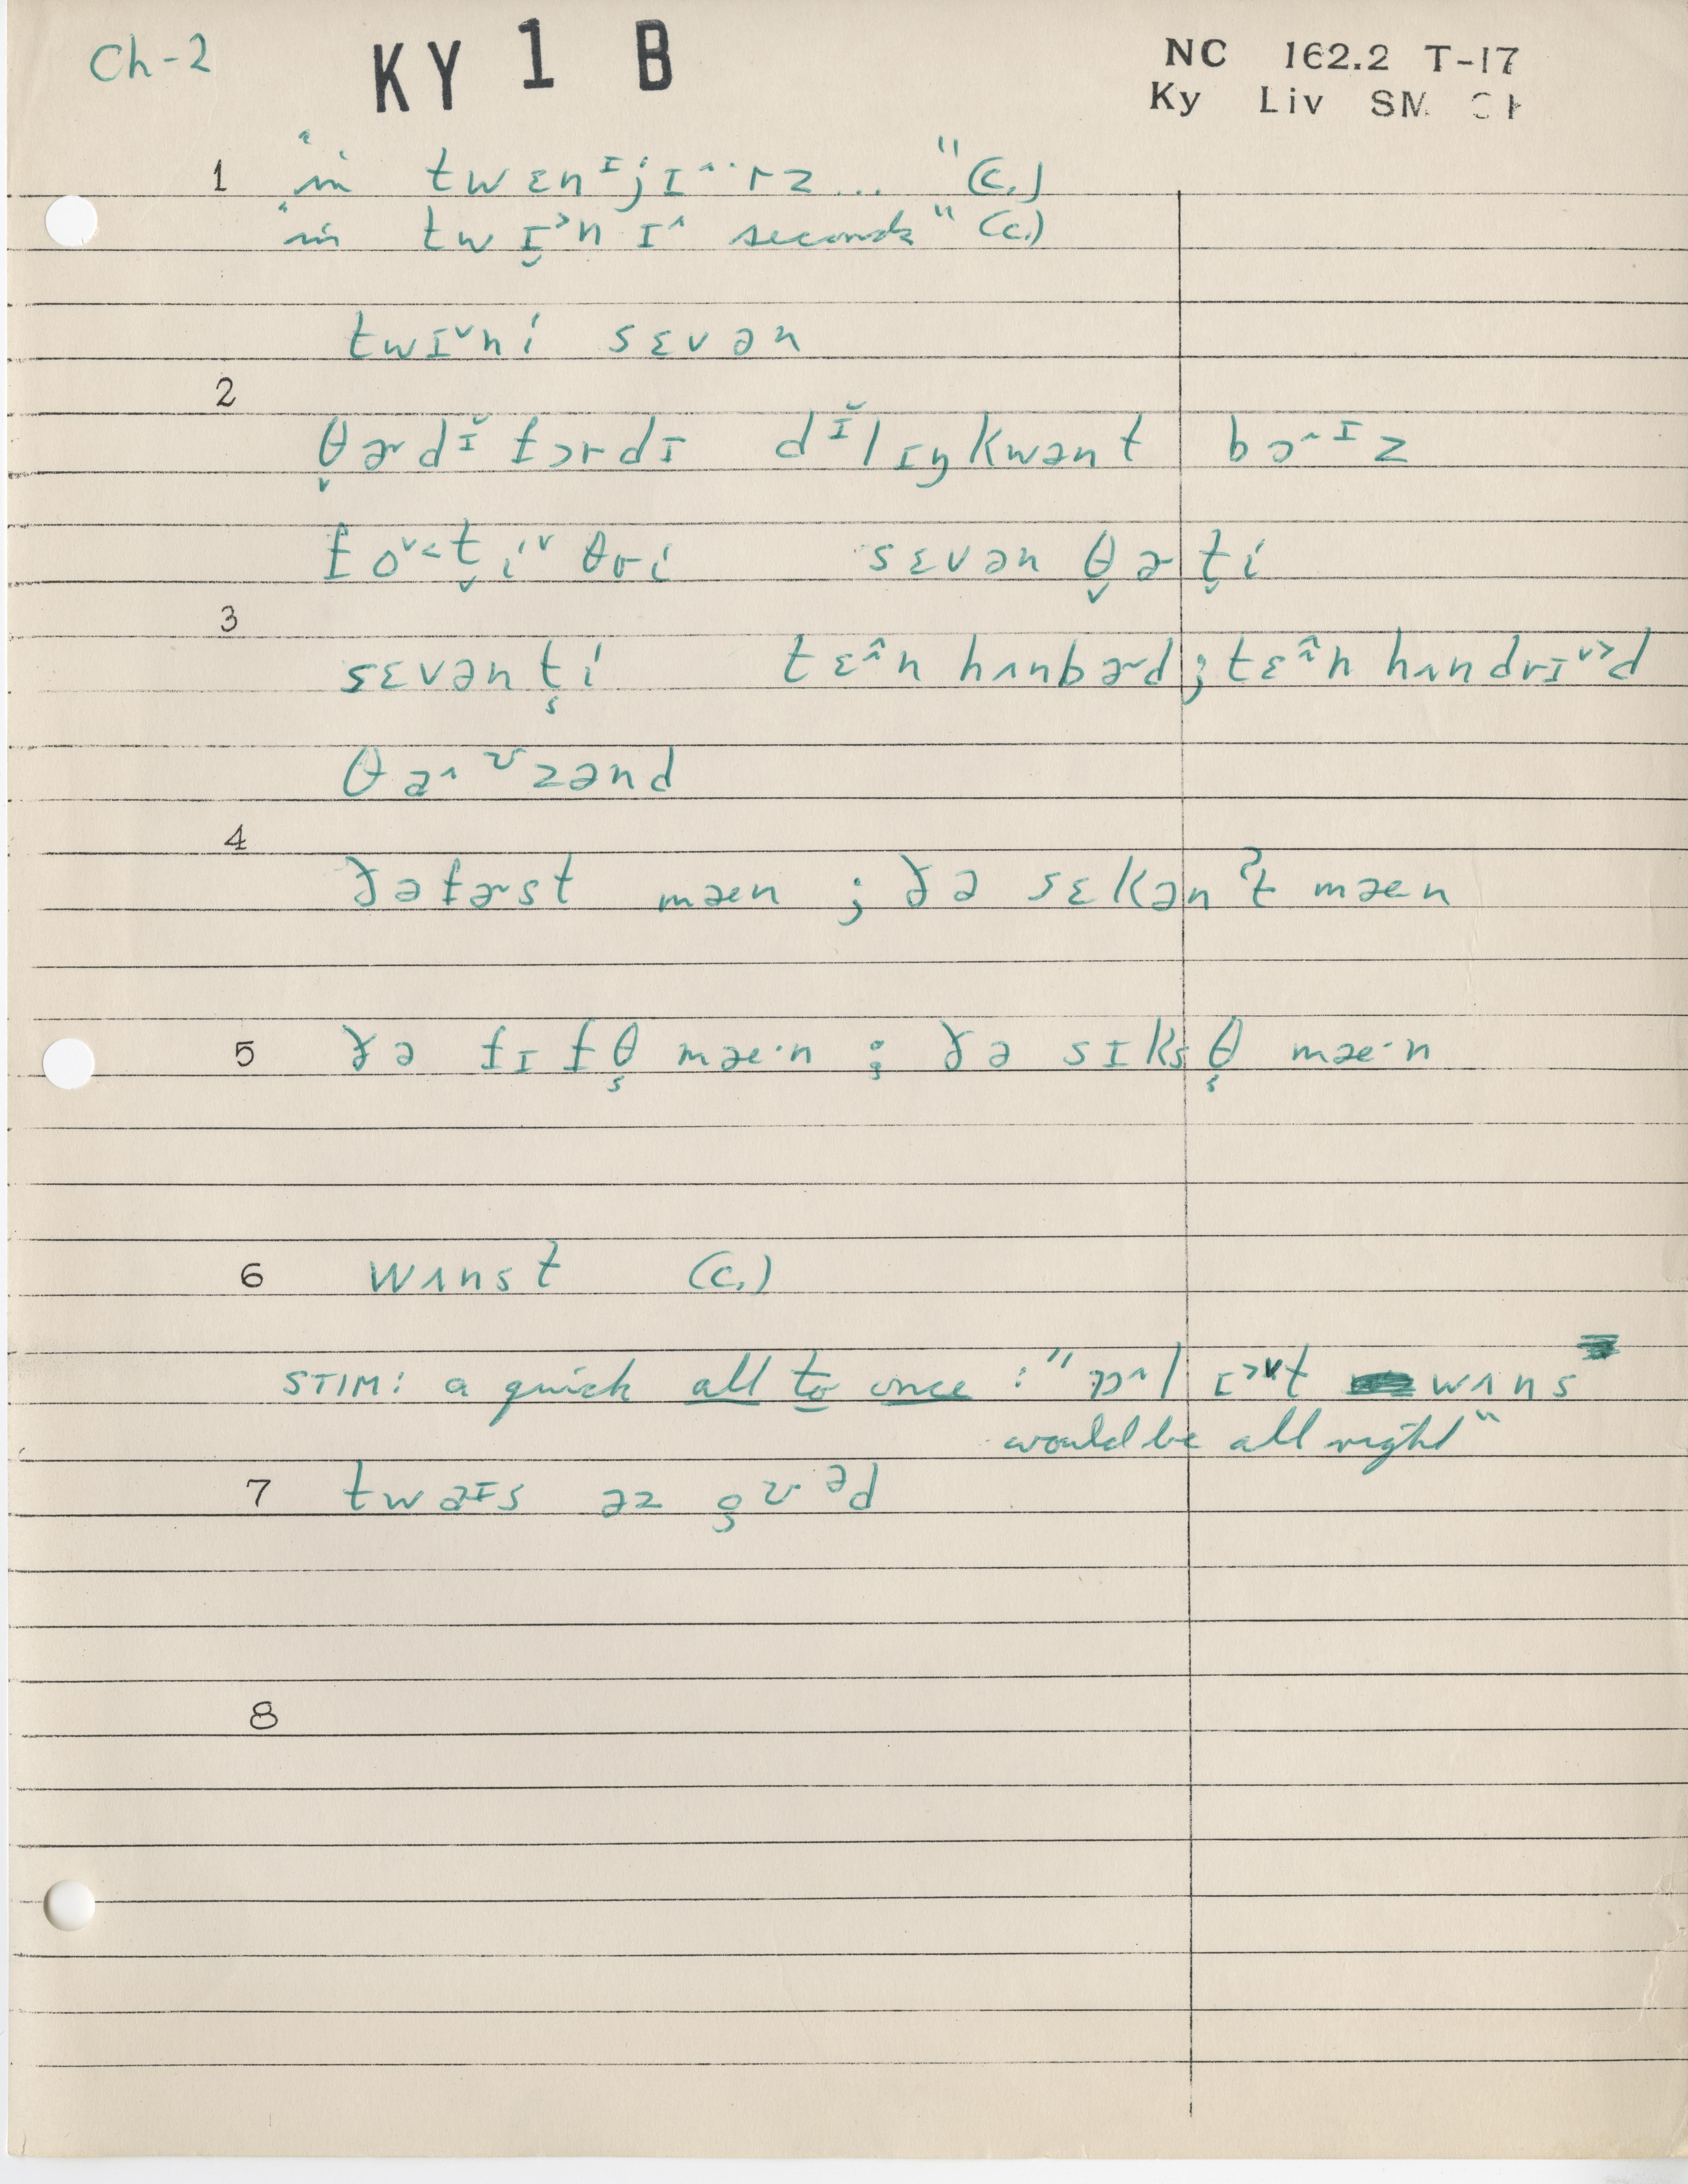 Ch-2 KY 1 B NC 162.2 T-17
Ky Liv SM
1 "in twɛnᶦjɪ˄·rz... " (c.)
"in twɪ̯˃nɪ˄ seconds" (c.)
twɪ˅ni sɛvən
2
θ̬ɚdɪ̆ fɔrdɪ dɪ̆lɪŋkwənt bɔ˄ᶦz
fo˅˂t̬i˅ θri sɛvən θ̬ɚt̬i
3
sɛvənt̬i tɛ ̂n hʌnbɚd; tɛ ̂n hʌndrɪ˅˃d
θa˄ᶷzənd
4
ðəfɚst mæn ; ðə sɛkənˀt mæn
5 ðə fɪfθ̬ mæ·n ; ðə sɪksθ̬ mæ·n
6 wʌnst (c.)
STIM: a quick all to once : "ɔ˄l ɪ˃˅t wʌns
would be all right"
7 twaɪs əz gʊ·ᵊd
8